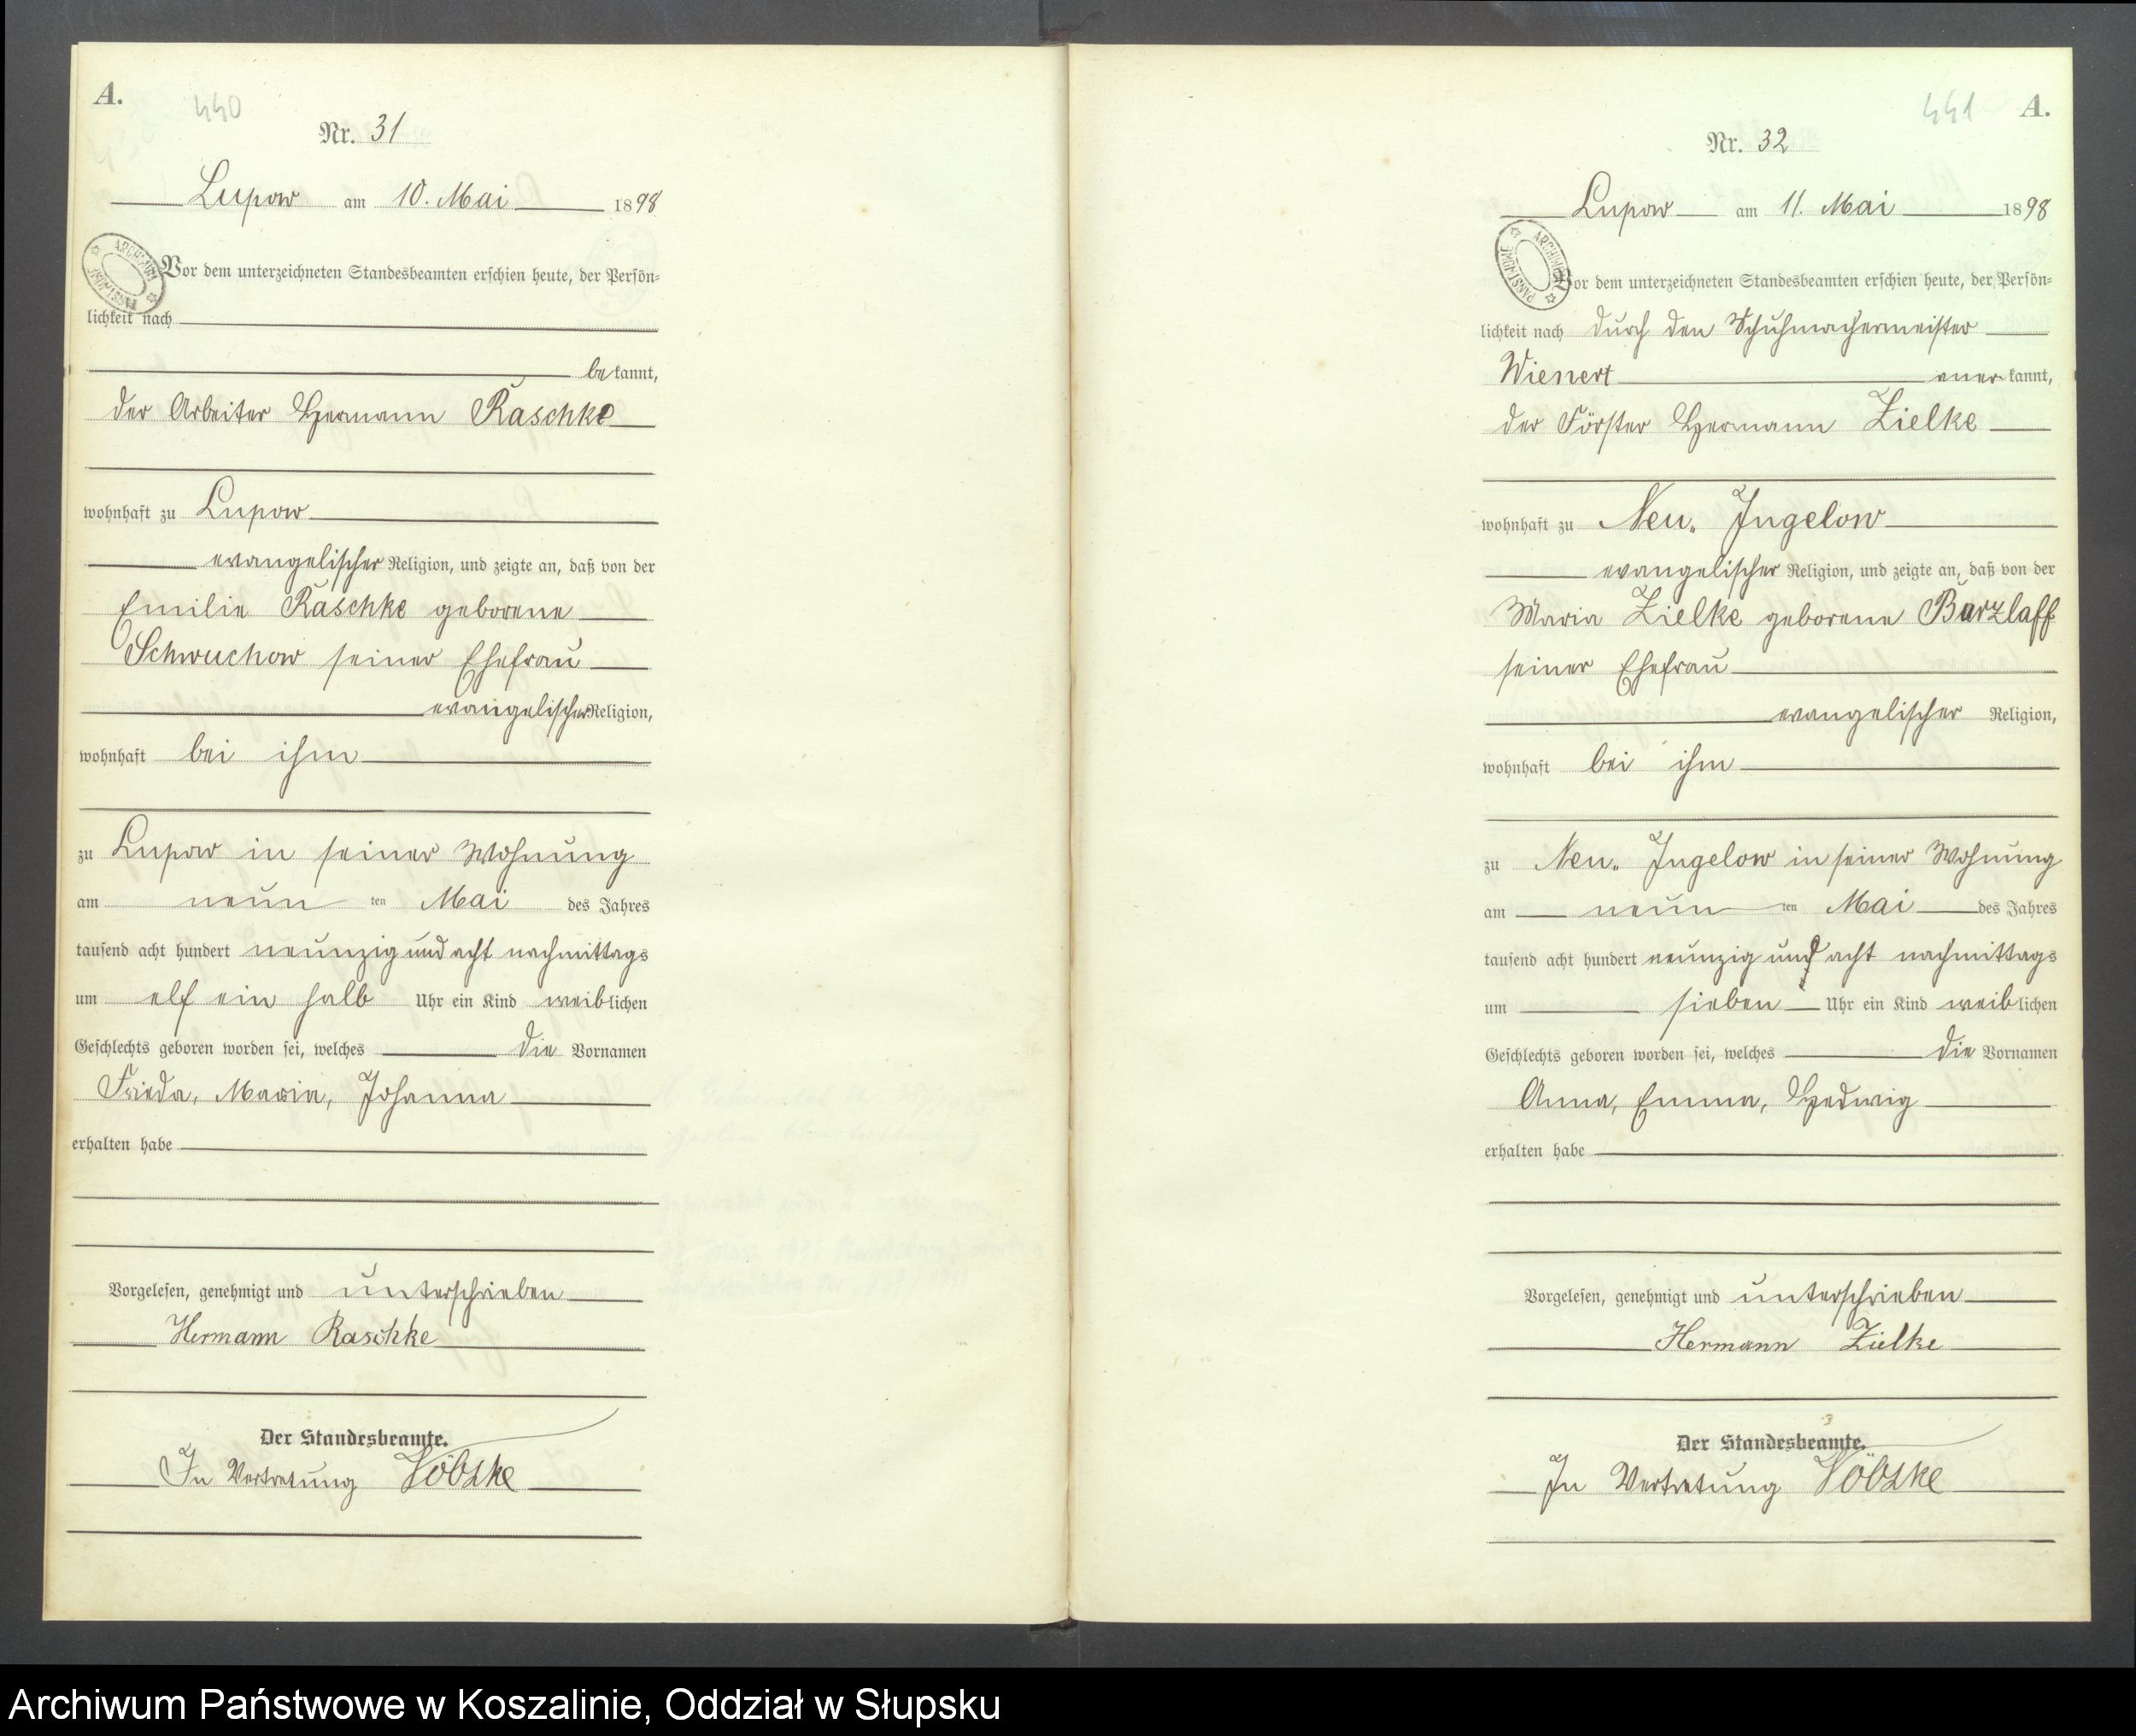 A.
440
Nr. 31
Lupow am 10. Mai 1898
Vor dem unterzeichneten Standesbeamten erschien heute, der Persön-
lichkeit nach
bekannt,
der Arbeiter Hermann Raschke
wohnhaft zu Lupow
evangelischer Religion, und zeigte an, daß von der
Emilie Raschke geborene
Schwuchow seiner Ehefrau
evangelischer Religion,
wohnhaft bei ihm
zu Lupow in seiner Wohnung
am neun ten Mai des Jahres
tausend acht hundert neunzig und acht nachmittags
um elf ein halb Uhr ein Kind weiblichen
Geschlechts geboren worden sei, welches die Vornamen
Frieda, Maria, Johanna
erhalten habe
Vorgelesen, genehmigt und unterschrieben
Hermann Raschke
Der Standesbeamte.
In Vertretung
441
A.
Nr. 32
Lupow am 11. Mai 1898
Vor dem unterzeichneten Standesbeamten erschien heute, der Persön-
lichkeit nach durch den Schuhmachermeister
Wienert anerkannt,
der Förster Hermann Zielke
wohnhaft zu Neu-Jugelow
evangelischer Religion, und zeigte an, daß von der
Maria Zielke geborene Barzlaff
seiner Ehefrau
evangelischer Religion,
wohnhaft bei ihm
zu Neu-Jugelow in seiner Wohnung
am neun ten Mai des Jahres
tausend acht hundert neunzig und acht nachmittags
um sieben Uhr ein Kind weiblichen
Geschlechts geboren worden sei, welches die Vornamen
Anna, Emma, Hedwig
erhalten habe
Vorgelesen, genehmigt und unterschrieben
Hermann Zielke
Der Standesbeamte.
In Vertretung
Archiwum Państwowe w Koszalinie, Oddział w Słupsku